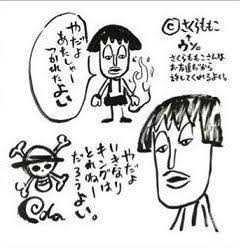 ©さくらももこ
ウソ。
さくらももこさんは
お友達だから
許してくれるよね。
やだよ
あたしゃ
つかれたよい
やだよ
いきなり
キングは
とれねー
だろうよい。
Oda